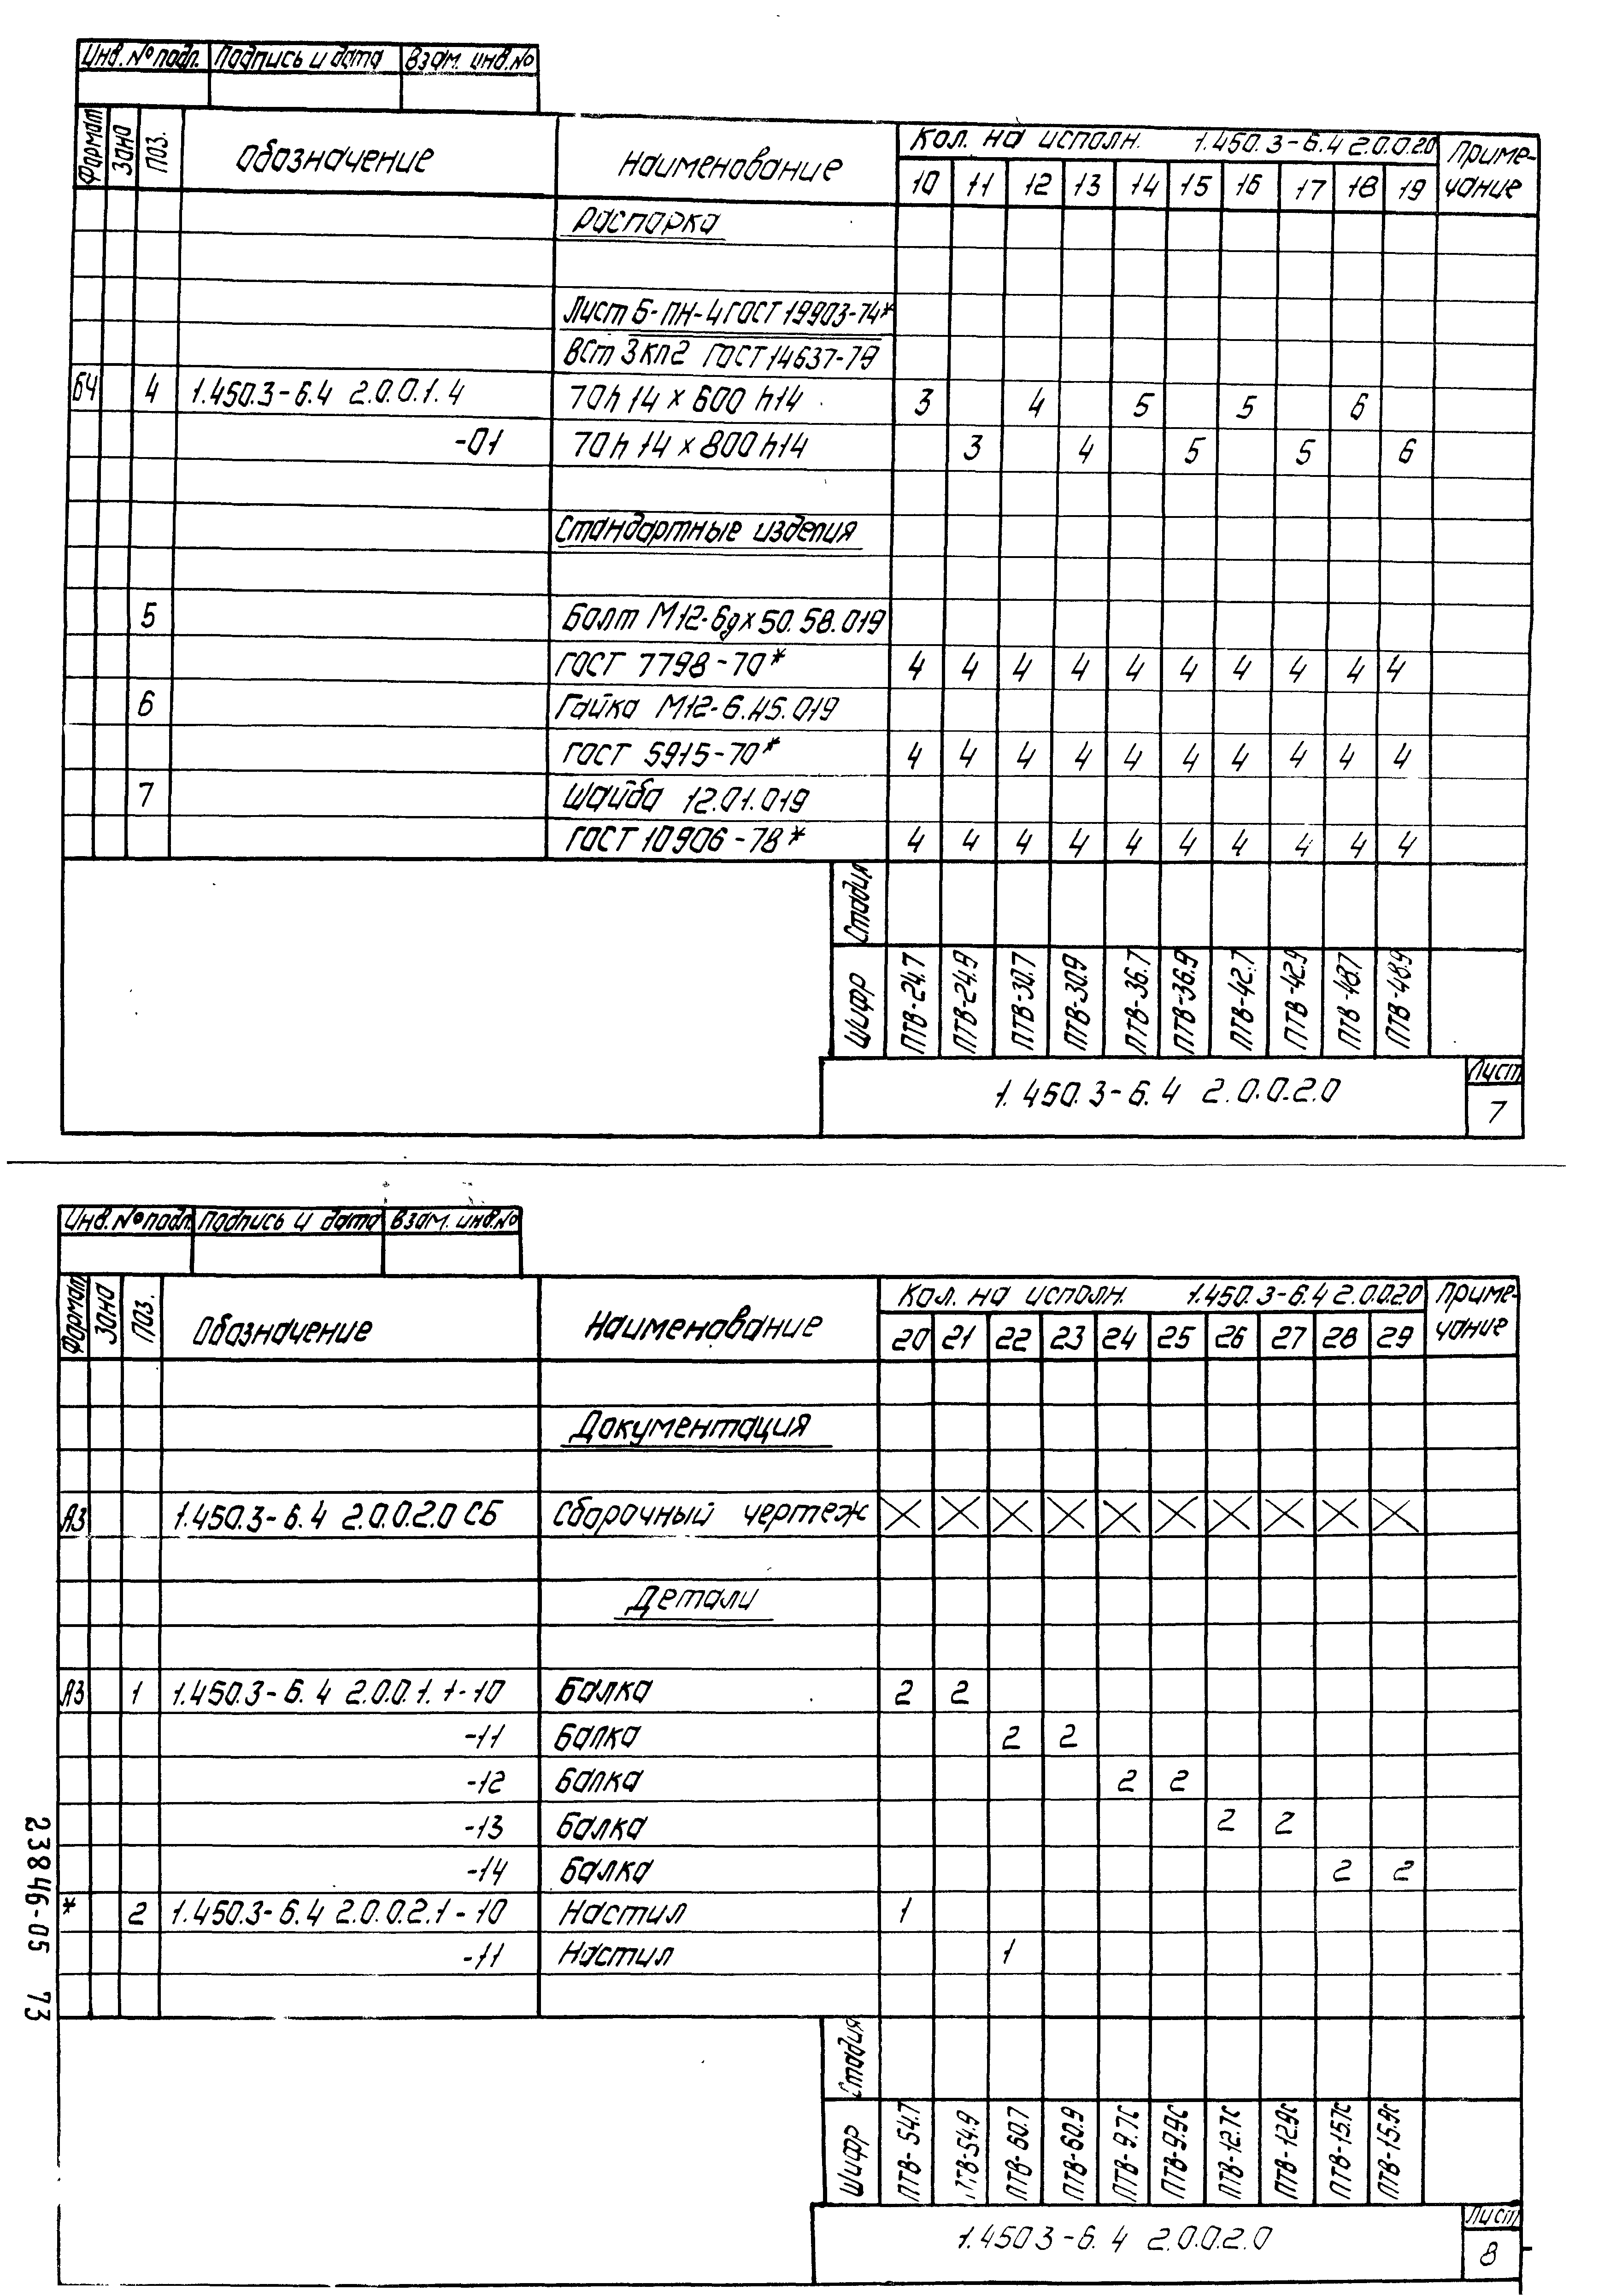 Инв. № подл. Подпись и дата Взам. инв. №
Формат Зона Поз. Обозначение Наименование Кол. на исполн. 1.450.3-6.4 2.0.0.20 Приме-
10 11 12 13 14 15 16 17 18 19 чание
Распорка
Лист Б-ПН-4 ГОСТ 19903-74*
ВСт 3кп2 ГОСТ 14637-79
БЧ 4 1.450.3-6.4 2.0.0.1.4 70h14 x 600 h14 3 4 5 5 6
-01 70h14 x 800h14 3 4 5 5 6
Стандартные изделия
5 Болт М12-6gx50.58.019
ГОСТ 7798-70* 4 4 4 4 4 4 4 4 4 4
6 Гайка М12-6.Н5.019
ГОСТ 5915-70* 4 4 4 4 4 4 4 4 4 4
7 Шайба 12.01.019
ГОСТ 10906-78* 4 4 4 4 4 4 4 4 4 4
Стадия
Шифр ПТВ-24.7 ПТВ-24.9 ПТВ-30.7 ПТВ-30.9 ПТВ-36.7 ПТВ-36.9 ПТВ-42.7 ПТВ-42.9 ПТВ-48.7 ПТВ-48.9
1.450.3-6.4 2.0.0.2.0 Лист
7
Инв. № подл. Подпись и дата Взам. инв. №
Формат Зона Поз. Обозначение Наименование Кол. на исполн. 1.450.3-6.4 2.0.0.20 Приме-
20 21 22 23 24 25 26 27 28 29 чание
Документация
А3 1.450.3-6.4 2.0.0.2.0 СБ Сборочный чертеж
Детали
А3 1 1.450.3-6.4 2.0.0.1.1-10 Балка 2 2
-11 Балка 2 2
-12 Балка 2 2
-13 Балка 2 2
-14 Балка 2 2
* 2 1.450.3-6.4 2.0.0.2.1-10 Настил 1
-11 Настил 1
Стадия
Шифр ПТВ-54.7 ПТВ-54.9 ПТВ-60.7 ПТВ-60.9 ПТВ-9.7С ПТВ-9.9С ПТВ-12.7С ПТВ-12.9С ПТВ-15.7С ПТВ-15.9С
1.450 3-6.4 2.0.0.2.0 Лист
8
23846-05 73